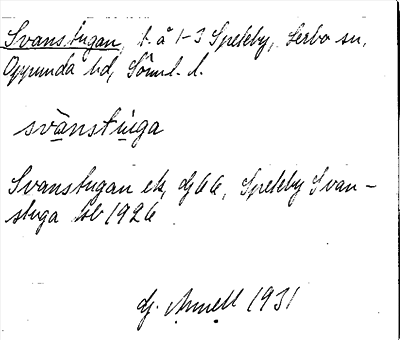 Svanstugan, t. å 1-3 Speteby, Lerbo sn,
Oppunda hd, Söml. l.
svànstùga
Svanstugan ek, dj 66, Speteby Svan-
stuga Jb 1926
dj. Arnell 1931